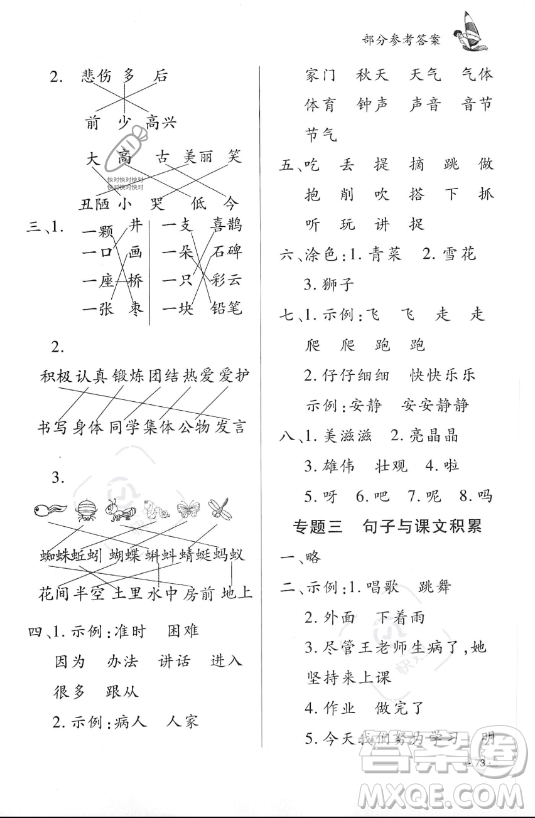 部分参考答案
2. 悲伤 多 后
前 少 高兴
大 高 古 美丽 笑
快对快对快对
快对快对快对
丑陋 小 哭 低 今
三、1. 一颗 井 一支 喜鹊
一口 画 一朵 石碑
一座 桥 一只 彩云
一张 枣 一块 铅笔
2.
积极 认真 锻炼 团结 热爱 爱护
书写 身体 同学 集体 公物 发言
3.
蜘蛛 蚯蚓 蝴蝶 蝌蚪 蜻蜓 蚂蚁
花间 半空 土里 水中 房前 地上
四、1. 示例:准时 困难
因为 办法 讲话 进入
很多 跟从
2. 示例:病人 人家
家门 秋天 天气 气体
体育 钟声 声音 音节
节气
五、吃 丢 提 摘 跳 做
抱 削 吹 搭 下 抓
听 玩 讲 捉
六、涂色:1. 青菜 2. 雪花
3. 狮子
七、1. 示例:飞 飞 走 走
爬 爬 跑 跑
2. 仔仔细细 快快乐乐
示例:安静 安安静静
八、1. 美滋滋 2. 亮晶晶
3. 雄伟 壮观 4. 啦
5. 呀 6. 吧 7. 呢 8. 吗
专题三 句子与课文积累
一、略
二、示例:1. 唱歌 跳舞
2. 外面 下着雨
3. 尽管王老师生病了,她
坚持来上课
4. 作业 做完了
5. 今天我们努力学习 明
73